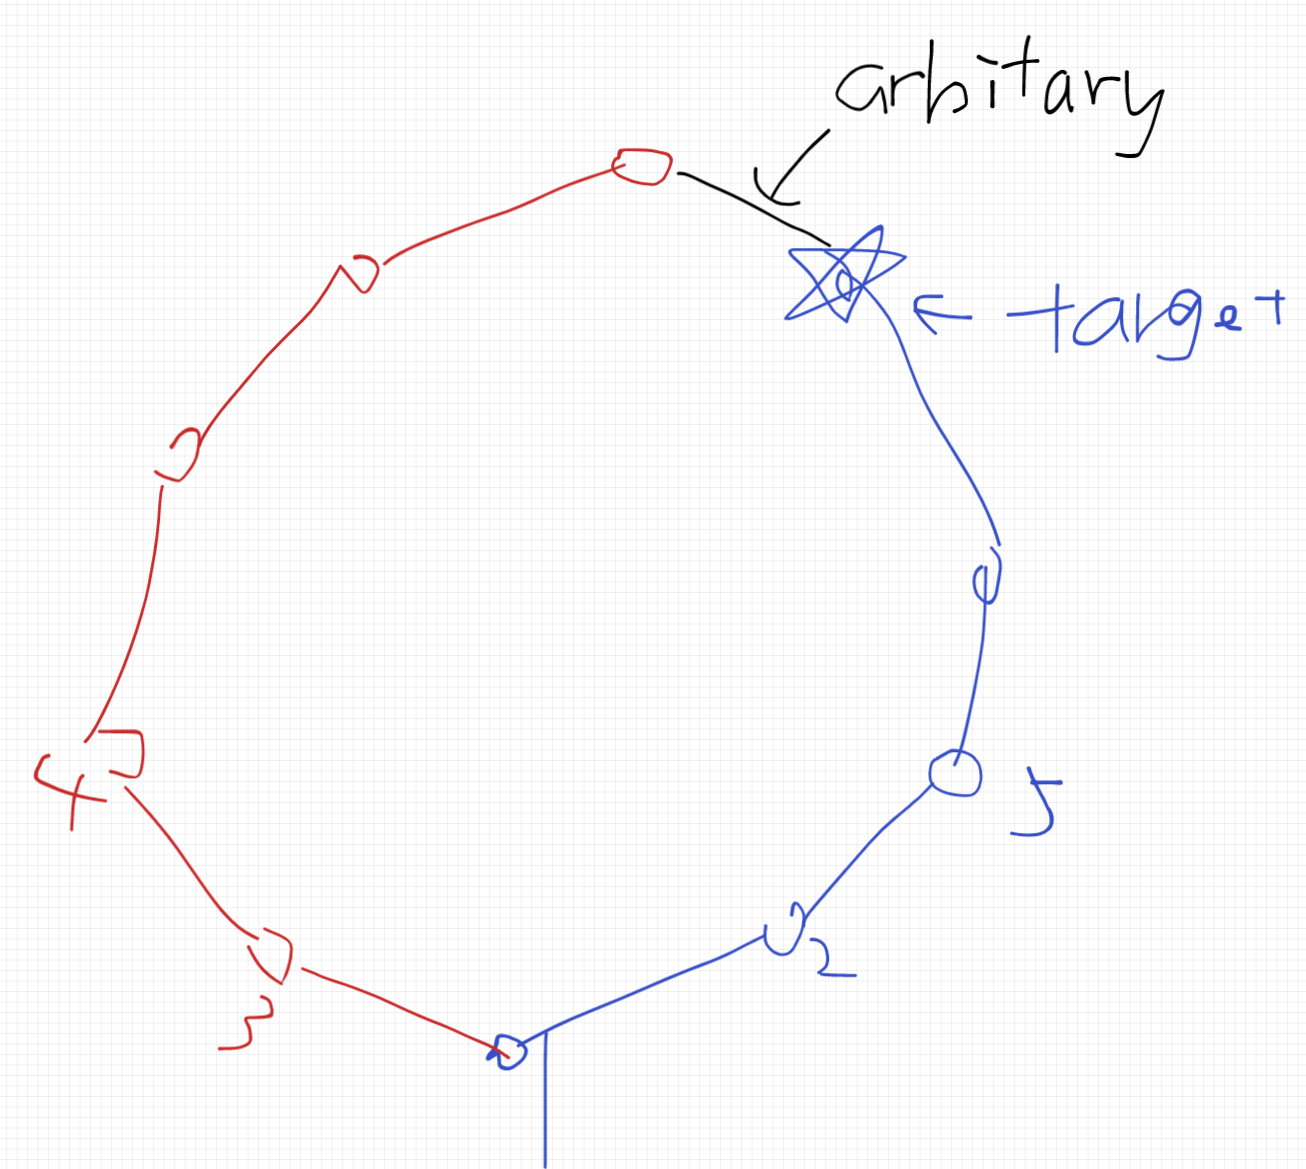 arbitary
target
5
4
2
3
1